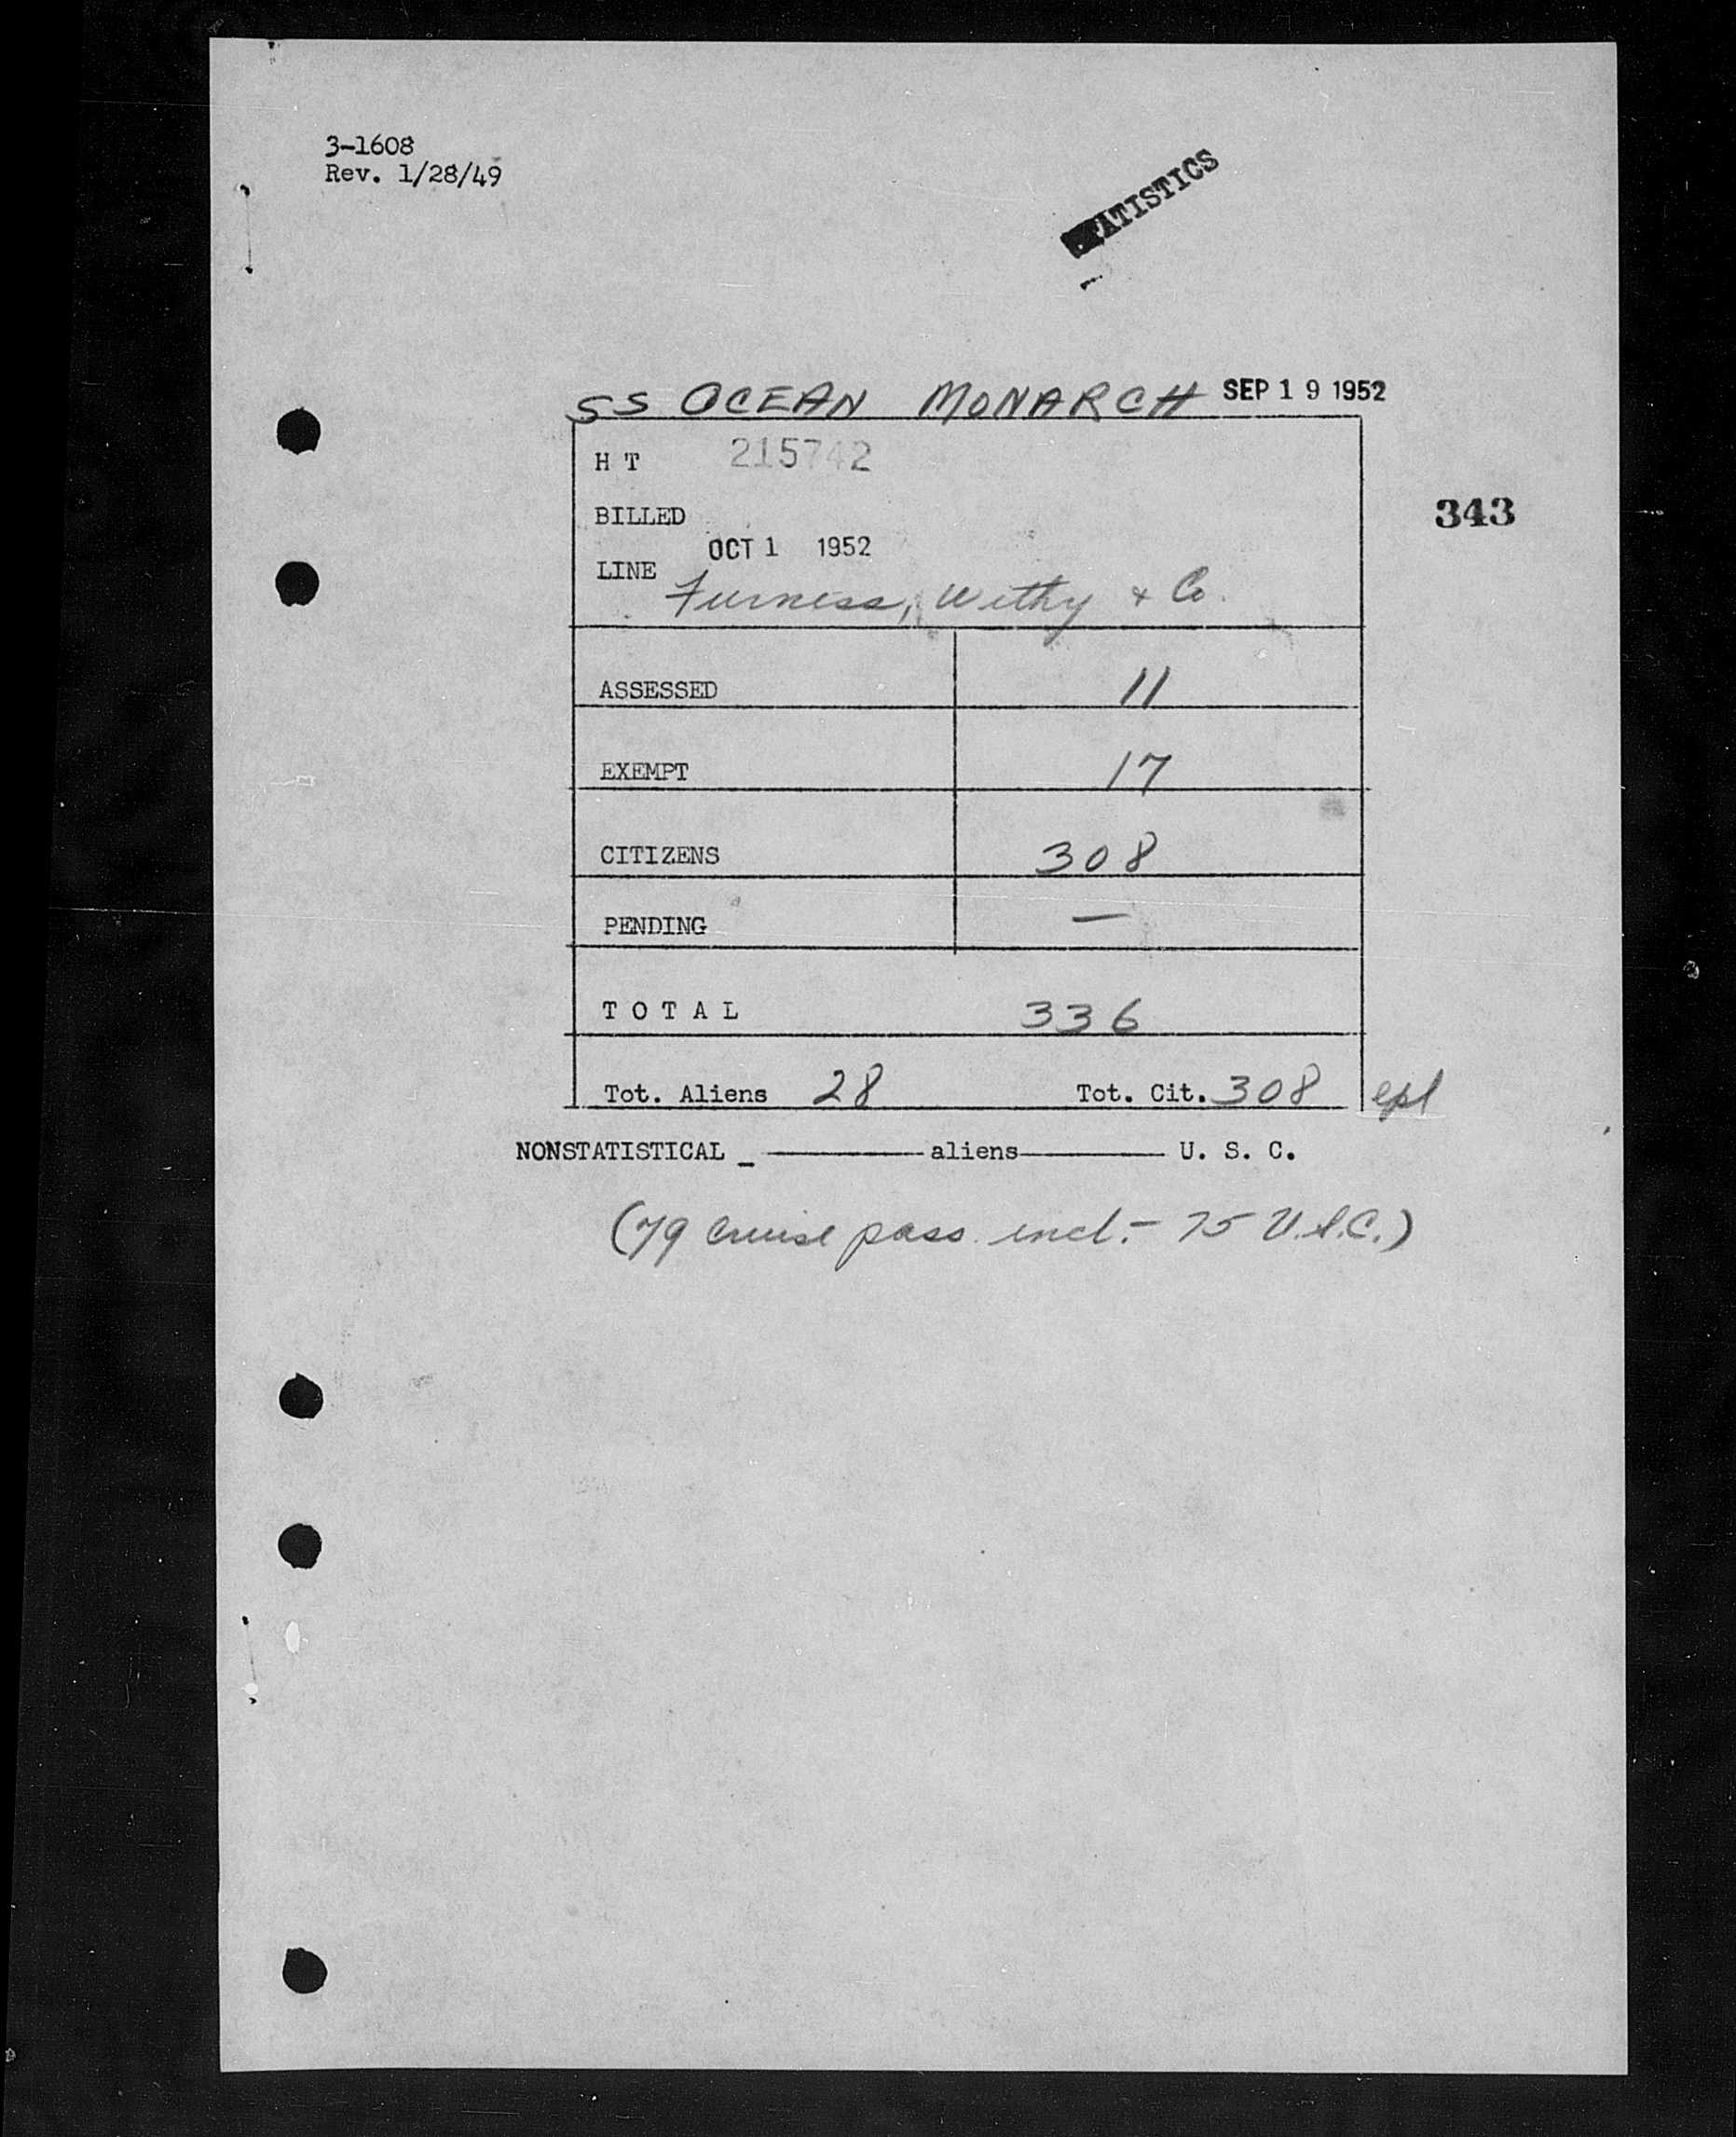 3-1608
Rev. 1/28/49
STATISTICS
SS OCEAN MONARCH SEP 19 1952
H T 215742
BILLED
OCT 1 1952
343
LINE
Furness, Withy & Co.
ASSESSED 11
EXEMPT 17
CITIZENS 308
PENDING —
T O T A L 336
Tot. Aliens 28 Tot. Cit. 308 epl
NONSTATISTICAL _ ———— aliens ———— U. S. C.
(79 cruise pass. incl. - 75 U.S.C.)